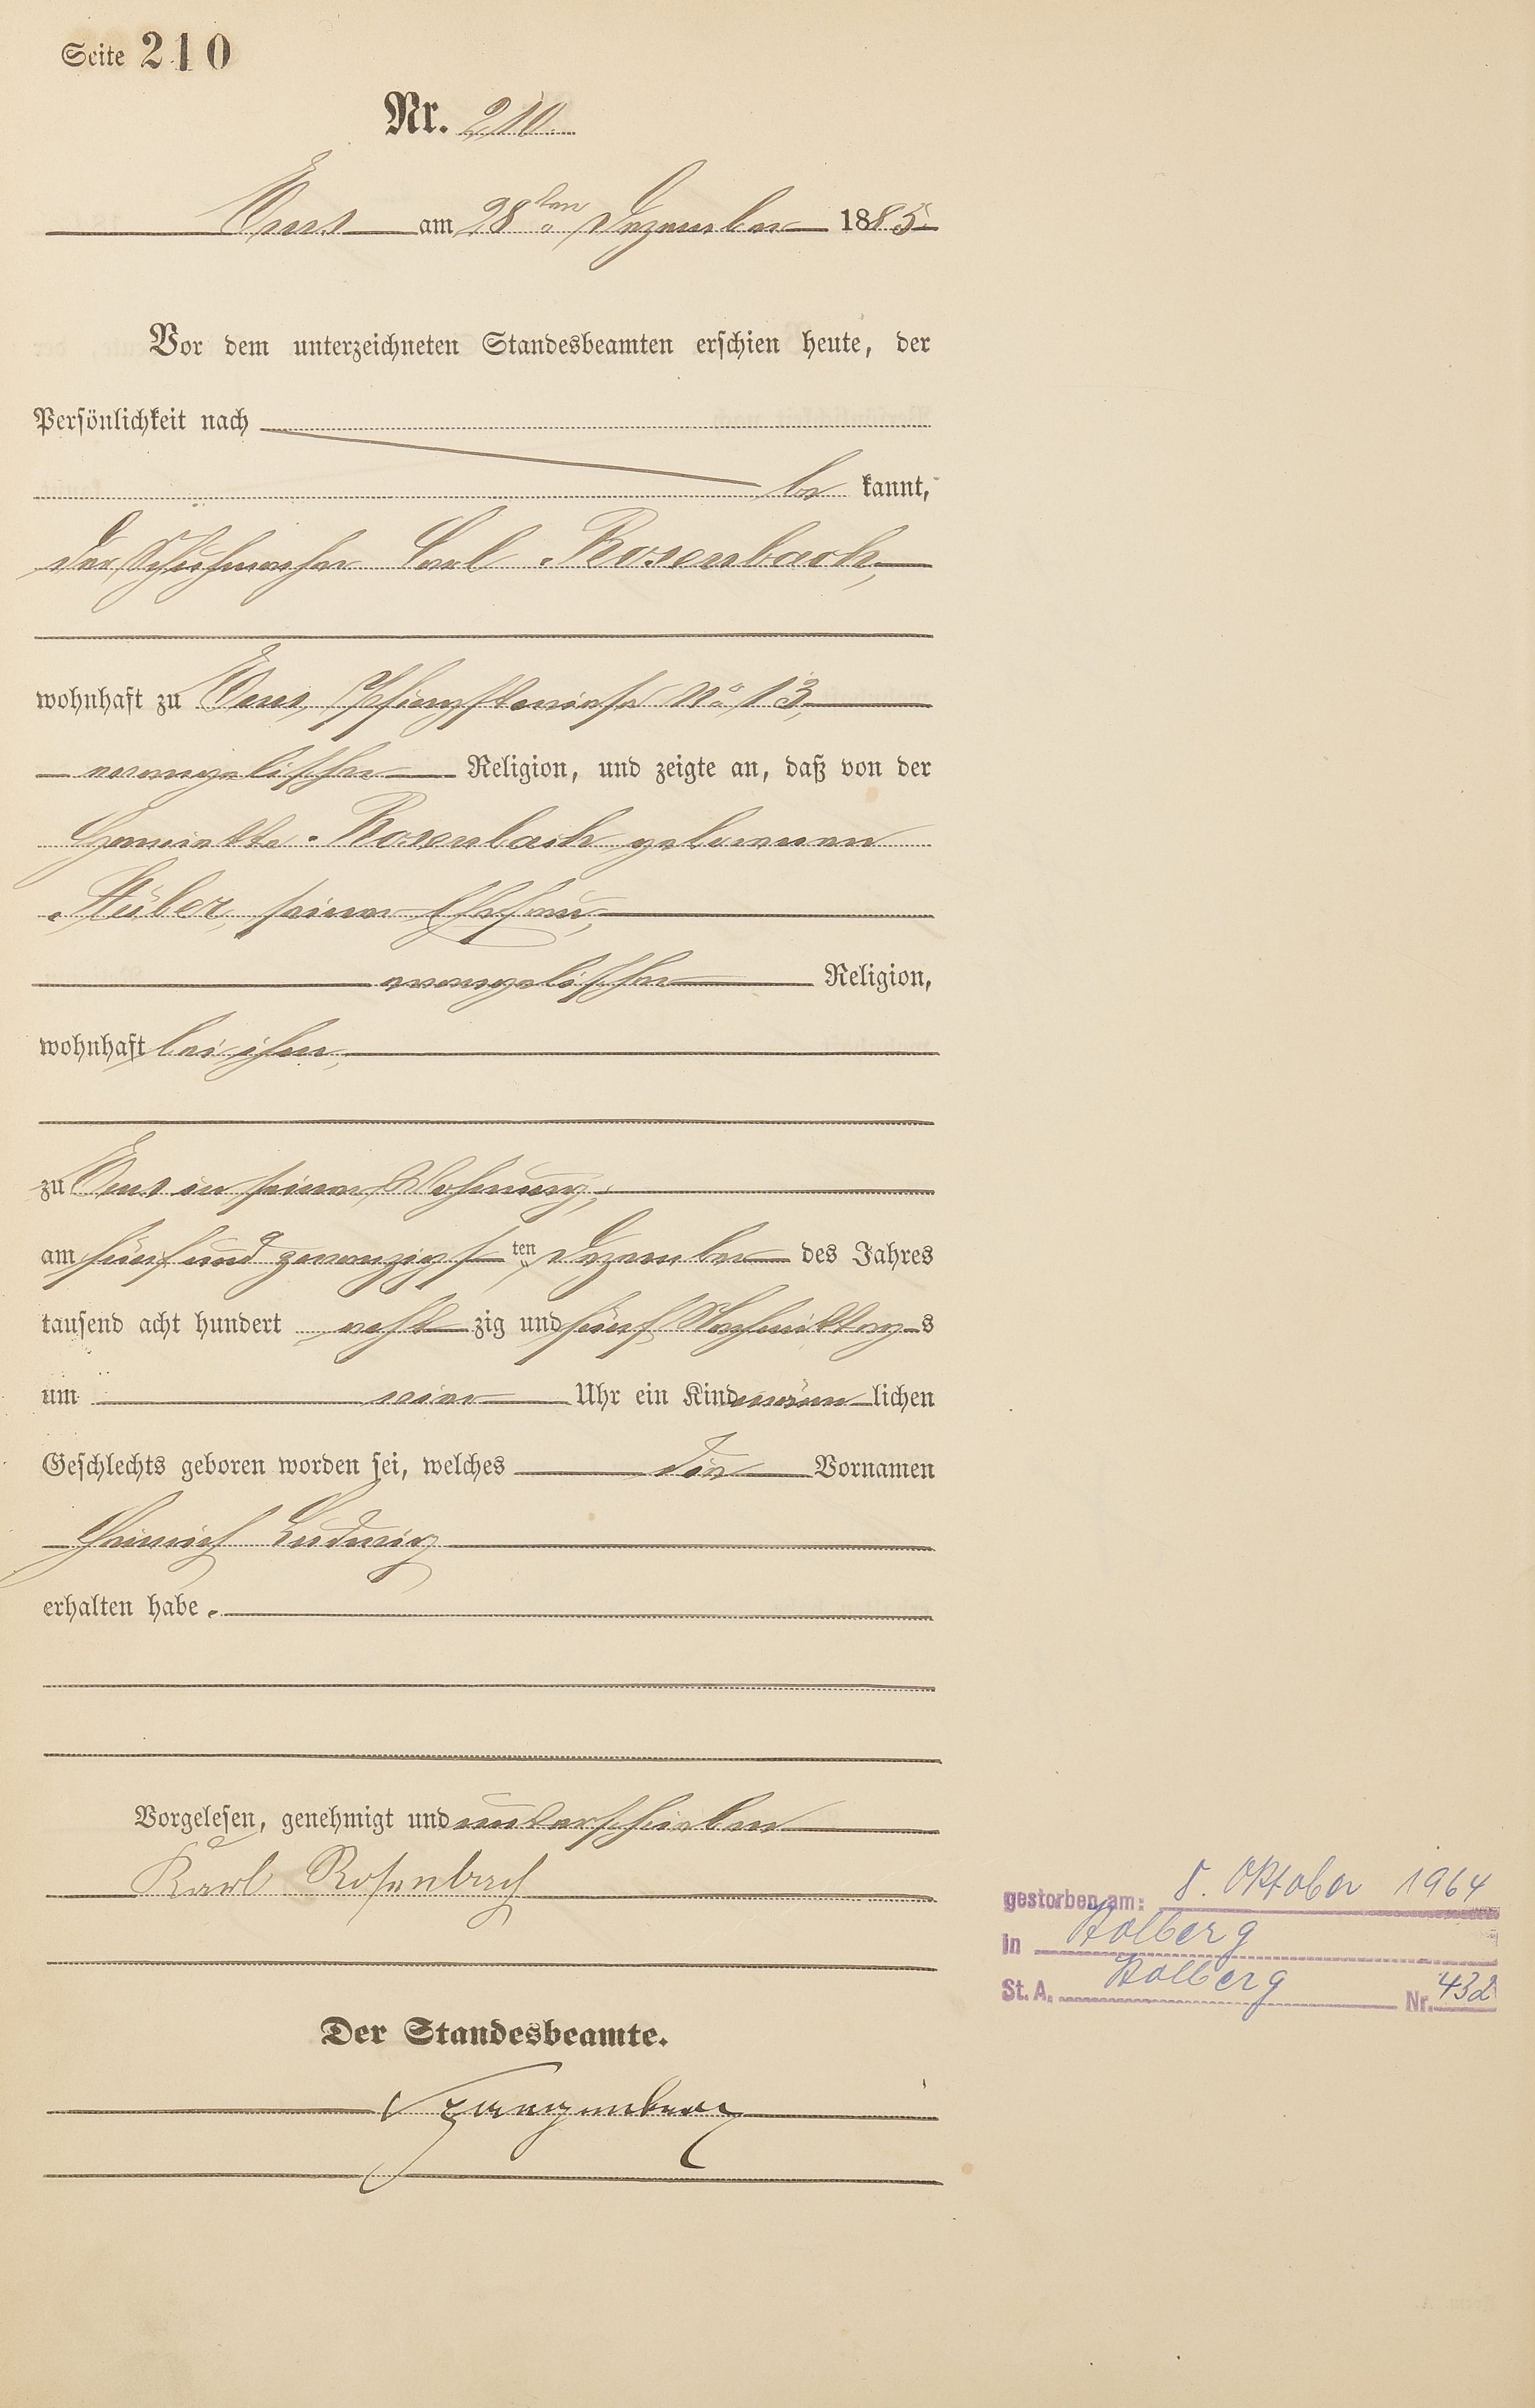 Seite 210
Nr. 210.
Ems am 28ten Dezember 1885.
Vor dem unterzeichneten Standesbeamten erschien heute, der
Persönlichkeit nach
be kannt,
der Schuhmacher Carl Rosenbach,
wohnhaft zu Ems, No 13,
evangelischer Religion, und zeigte an, daß von der
Henriette Rosenbach geborenen
Stüber, seiner Ehefrau,
evangelischer Religion,
wohnhaft bei ihm,
zu Ems in seiner Wohnung,
am fünf und zwanzigsten ten Dezember des Jahres
tausend acht hundert acht zig und fünf Nachmittags
um vier Uhr ein Kind männlichen
Geschlechts geboren worden sei, welches die Vornamen
Heinrich Ludwig
erhalten habe.
Vorgelesen, genehmigt und unterschrieben
Karl Rosenbach
Der Standesbeamte.
gestorben am: 8. Oktober 1964
in
St. A. Nr. 432